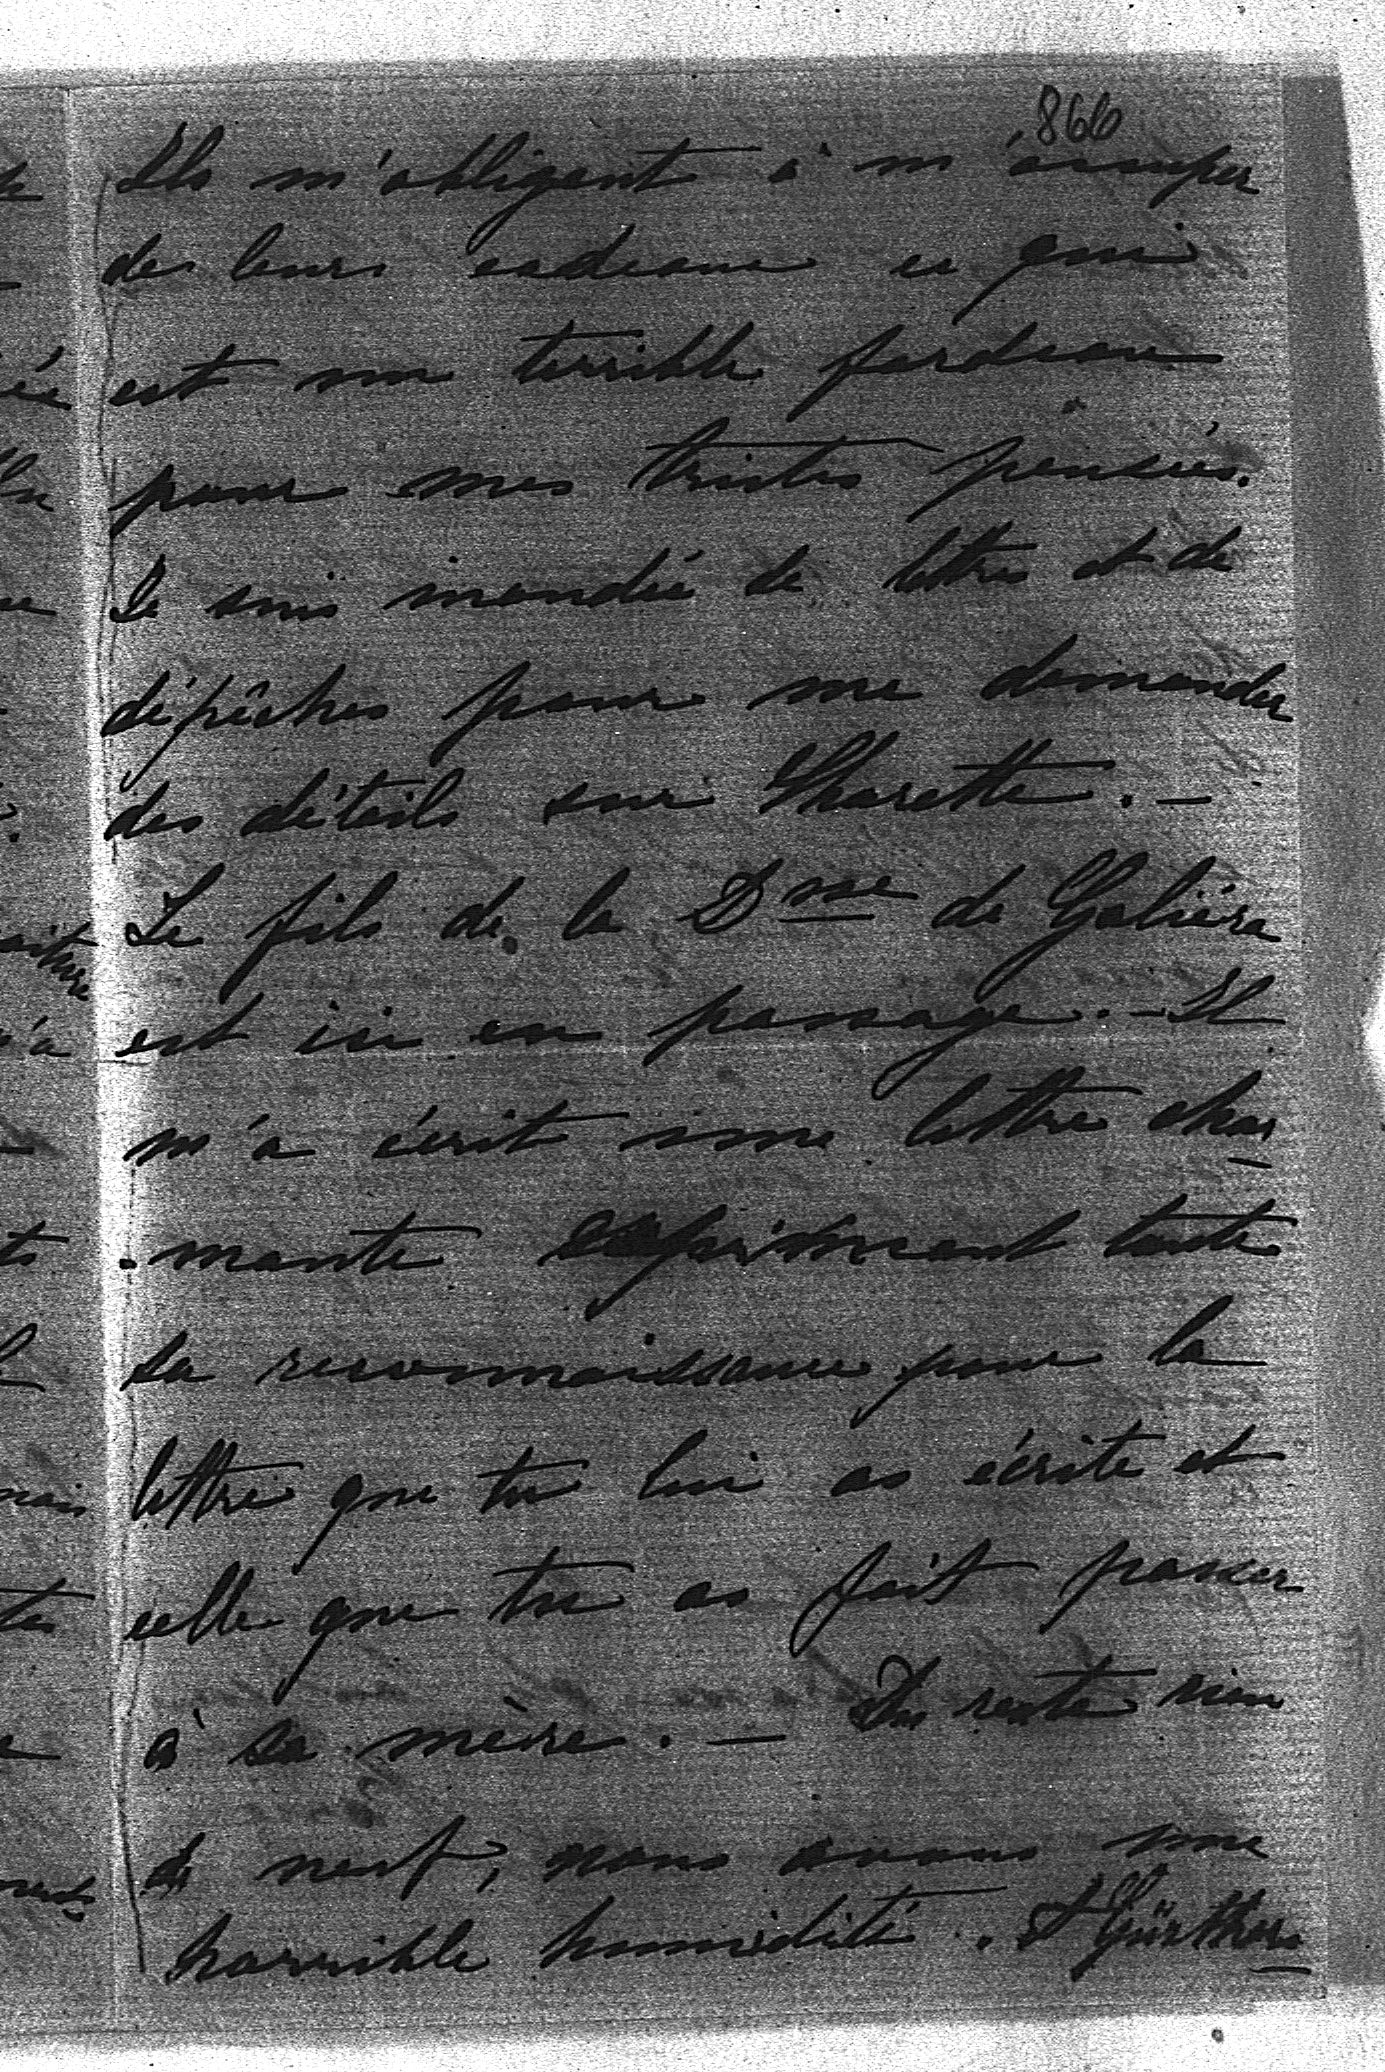 866
Ils m'obligent à m'occuper
de leurs cadeaux ce qui
est un terrible fardeau
pour mes tristes pensées.
Je suis inondée de lettres et de
dépêches pour me demander
des détails sur Charette. –
Le fils de la Dsse de Galiéra
est ici en passage. – Il
m'a écrit une lettre char
- mante exprimant toute
sa reconnaissance pour la
lettre que tu lui as écrite et
celle que tu as fait passer
à sa mère. – Du reste rien
de neuf, nous avons une
horrible humidité.